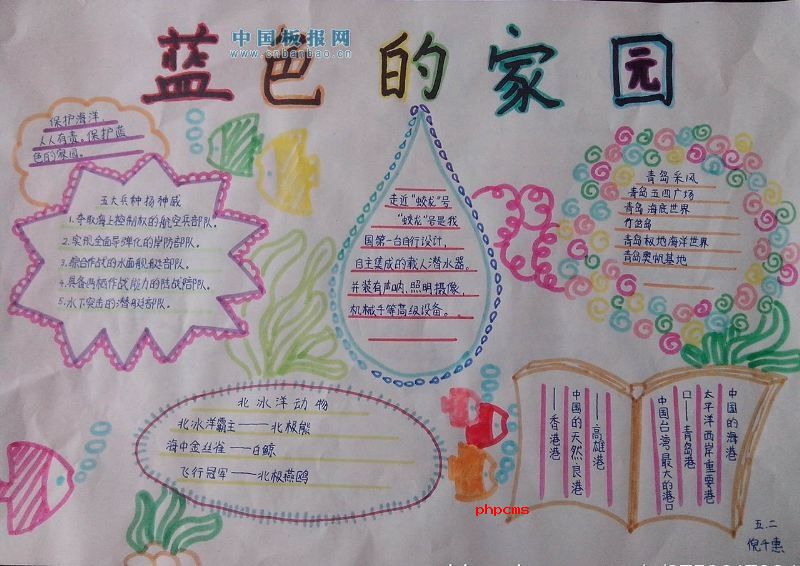 蓝色的家园
中国板报网
www.cnbanbao.cn
保护海洋，
人人有责。保护蓝
色的家园。
五大兵种扬神威
1.夺取海上控制权的航空兵部队。
2.实现全面导弹化的岸防部队。
3.综合作战的水面舰艇部队。
4.具备两栖作战能力的陆战部队。
5.水下突击的潜艇部队。
走近“蛟龙”号
“蛟龙”号是我
国第一台自行设计，
自主集成的载人潜水器。
并装有声呐、照明摄像，
机械手等高级设备。
青岛采风
青岛五四广场
青岛海底世界
竹岔岛
青岛极地海洋世界
青岛奥帆基地
北冰洋动物
北冰洋霸主——北极熊
海中金丝雀——白鲸
飞行冠军——北极燕鸥
中国的海港
太平洋西岸重要港
口——青岛港
中国台湾最大的港口
——高雄港
中国的天然良港
——香港港
phpcms
五.二
倪千惠